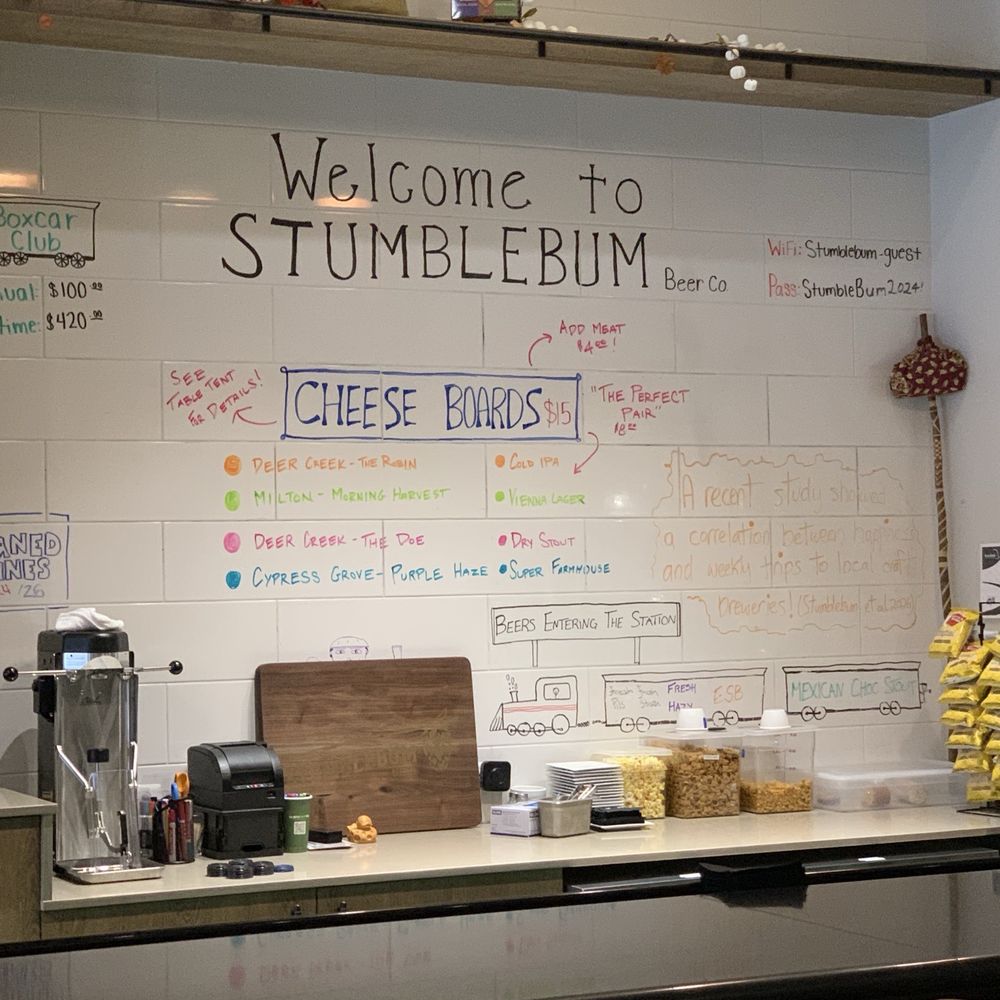 Welcome to
STUMBLEBUM
Beer Co.
Boxcar
Club
ual: $100.00
time: $420.00
WiFi: Stumblebum-guest
Pass: StumbleBum2024!
ADD MEAT
$4.00!
SEE
TABLE TENT
FOR DETAILS!
CHEESE BOARDS $15
"THE PERFECT
PAIR"
$8.00
DEER CREEK - THE ROBIN
COLD IPA
MILTON - MORNING HARVEST
VIENNA LAGER
DEER CREEK - THE DOE
DRY STOUT
CYPRESS GROVE - PURPLE HAZE
SUPER FARMHOUSE
A recent study showed
a correlation between happiness
and weekly trips to local craft
breweries! (Stumblebum, et al 2024)
ANED
INES
/26
BEERS ENTERING THE STATION
FRESH
HAZY
ESB
MEXICAN CHOC STOUT